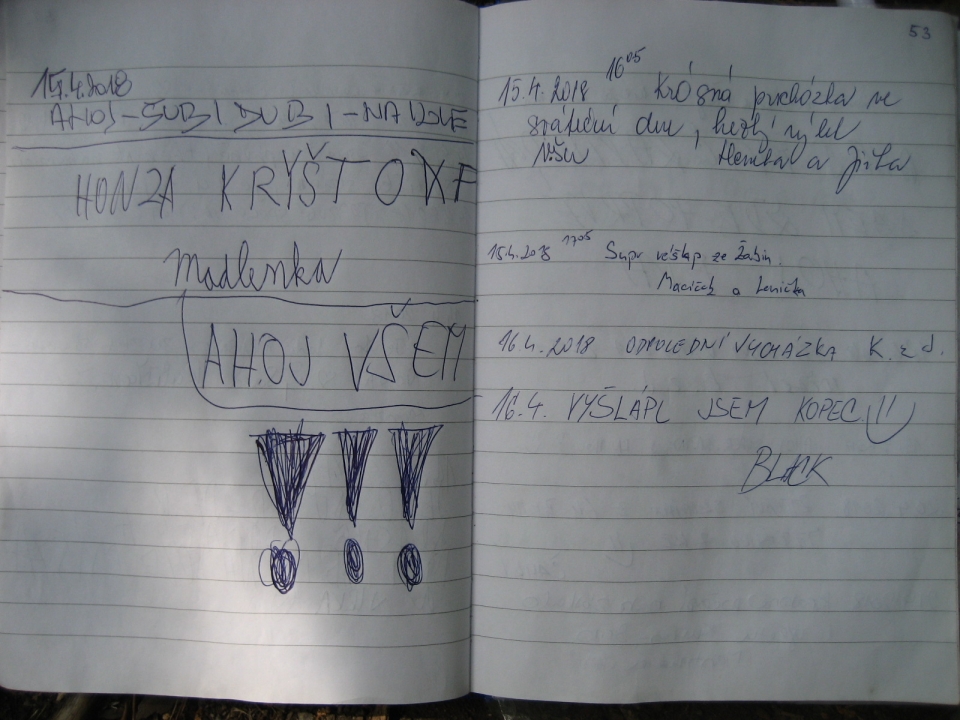 15.4.2018
AHOJ-ŠUBIDUBI-NA DOLE
HONZA KRYŠTOF
Madlenka
AHOJ VŠEM
!!!
53
15.4.2018 16 05 Krásná procházka ve
sváteční den, hezký výlet
Všem Henka a Jirka
15.4.2018 17 05 Supr véšlap ze Žabin.
Macíček a Lenička
16.4.2018 ODPOLEDNÍ VYCHÁZKA K. z J.
16.4. VYŠLÁPL JSEM KOPEC
BLACK